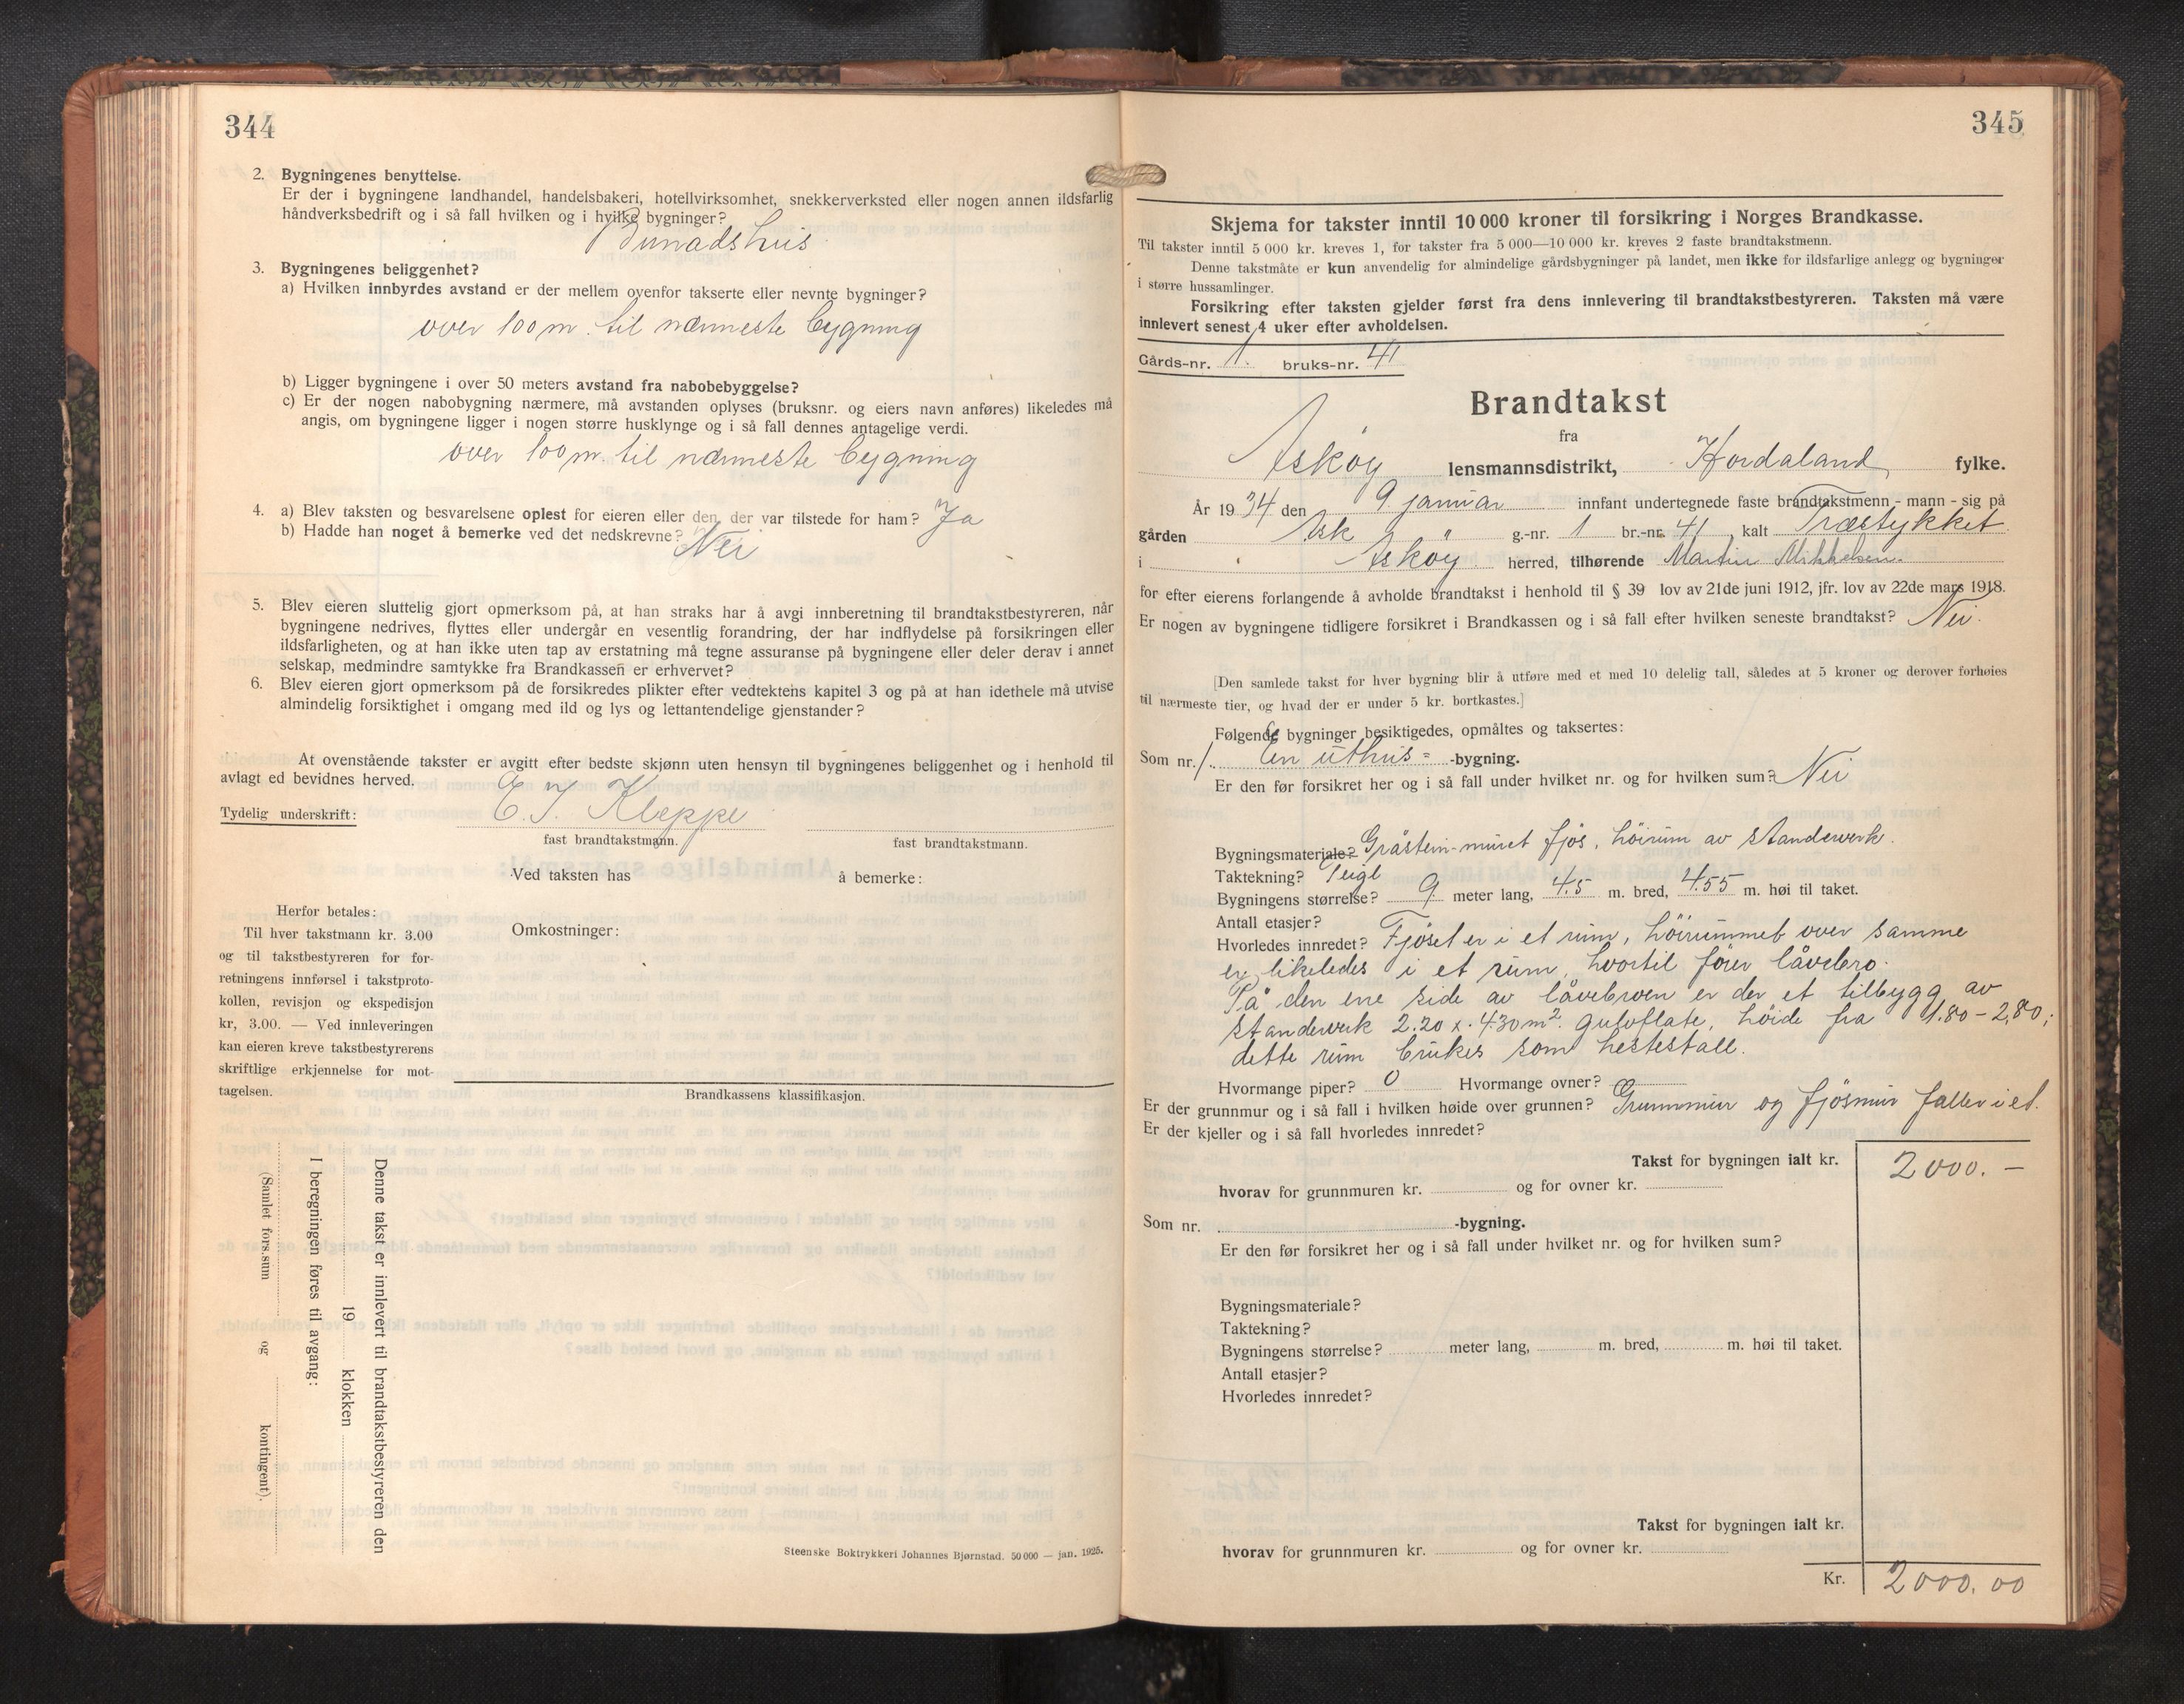 344
2. Bygningenes benyttelse.
Er der i bygningene landhandel, handelsbakeri, hotellvirksomhet, snekkerverksted eller nogen annen ildsfarlig
håndverksbedrift og i så fall hvilken og i hvilke bygninger?
3. Bygningenes beliggenhet?
a) Hvilken innbyrdes avstand er der mellem ovenfor takserte eller nevnte bygninger?
over 100 m. til nærmeste bygning
b) Ligger bygningene i over 50 meters avstand fra nabobebyggelse?
c) Er der nogen nabobygning nærmere, må avstanden oplyses (bruksnr. og eiers navn anføres) likeledes må
angis, om bygningene ligger i nogen større husklynge og i så fall dennes antagelige verdi.
over 100 m. til nærmeste bygning
4. a) Blev taksten og besvarelsene oplest for eieren eller den, der var tilstede for ham? Ja
b) Hadde han noget å bemerke ved det nedskrevne? Nei
5. Blev eieren sluttelig gjort opmerksom på, at han straks har å avgi innberetning til brandtakstbestyreren, når
bygningene nedrives, flyttes eller undergår en vesentlig forandring, der har indflydelse på forsikringen eller
ildsfarligheten, og at han ikke uten tap av erstatning må tegne assuranse på bygningene eller deler derav i annet
selskap, medmindre samtykke fra Brandkassen er erhvervet?
6. Blev eieren gjort opmerksom på de forsikredes plikter efter vedtektens kapitel 3 og på at han idethele må utvise
almindelig forsiktighet i omgang med ild og lys og lettantendelige gjenstander?
At ovenstående takster er avgitt efter bedste skjønn uten hensyn til bygningenes beliggenhet og i henhold til
avlagt ed bevidnes herved.
Tydelig underskrift: E. J. Kleppe
fast brandtakstmann. fast brandtakstmann.
Ved taksten has å bemerke:
Herfor betales:
Til hver takstmann kr. 3.00
og til takstbestyreren for for-
retningens innførsel i takstproto-
kollen, revisjon og ekspedisjon
kr, 3.00. — Ved innleveringen
kan eieren kreve takstbestyrerens
skriftlige erkjennelse for mot-
tagelsen.
Omkostninger:
Brandkassens klassifikasjon.
Denne takst er innlevert til brandtakstbestyreren den
19 klokken
I beregningen føres til avgang:
(Samlet fors.sum og kontingent).
Steenske Boktrykkeri Johannes Bjørnstad. 50 000 — jan. 1925.
345
Skjema for takster inntil 10 000 kroner til forsikring i Norges Brandkasse.
Til takster inntil 5 000 kr. kreves 1, for takster fra 5 000—10 000 kr. kreves 2 faste brandtakstmenn.
Denne takstmåte er kun anvendelig for almindelige gårdsbygninger på landet, men ikke for ildsfarlige anlegg og bygninger
i større hussamlinger.
Forsikring efter taksten gjelder først fra dens innlevering til brandtakstbestyreren. Taksten må være
innlevert senest 4 uker efter avholdelsen.
Gårds-nr. 1. bruks-nr. 41
Brandtakst
fra
Askøy lensmannsdistrikt, Hordaland fylke.
År 1934 den 9. januar innfant undertegnede faste brandtakstmenn - mann - sig på
gården Ask g.-nr. 1 br.-nr. 41, kalt Træstykket
i Askøy herred, tilhørende Martin Mikkelsen.
for efter eierens forlangende å avholde brandtakst i henhold til § 39 lov av 21de juni 1912, jfr. lov av 22de mars 1918.
Er nogen av bygningene tidligere forsikret i Brandkassen og i så fall efter hvilken seneste brandtakst? Nei.
[Den samlede takst for hver bygning blir å utføre med et med 10 delelig tall, således at 5 kroner og derover forhøies
til nærmeste tier, og hvad der er under 5 kr. bortkastes.]
Følgende bygninger besiktigedes, opmåltes og taksertes:
Som nr. 1. En uthus= -bygning.
Er den før forsikret her og i så fall under hvilket nr. og for hvilken sum? Nei
Bygningsmateriale? Gråstein-muret fjøs, høirum av standerverk.
Taktekning? Teigl
Bygningens størrelse? 9 meter lang, 4.5 m. bred, 4.55 m. høi til taket.
Antall etasjer?
Hvorledes innredet? Fjøset er i et rum, høirummet over samme
er likeledes i et rum, hvortil fører låvebro.
På den ene side av låvebroen er der et tilbygg av
standerverk 2.20 x 4.30 m². gulvflate, høide fra 1.80 - 2.80,;
dette rum brukes som hestestall.
Hvormange piper? 0 Hvormange ovner?
Er der grunnmur og i så fall i hvilken høide over grunnen? Grunnmur og fjøsmur faller i et.
Er der kjeller og i så fall hvorledes innredet?
Takst for bygningen ialt kr. 2000. —
hvorav for grunnmuren kr. og for ovner kr.
Som nr. -bygning.
Er den før forsikret her og i så fall under hvilket nr. og for hvilken sum?
Bygningsmateriale?
Taktekning?
Bygningens størrelse? meter lang, m. bred, m. høi til taket.
Antall etasjer?
Hvorledes innredet?
Takst for bygningen ialt kr.
hvorav for grunnmuren kr. og for ovner kr.
Kr. 2000.00